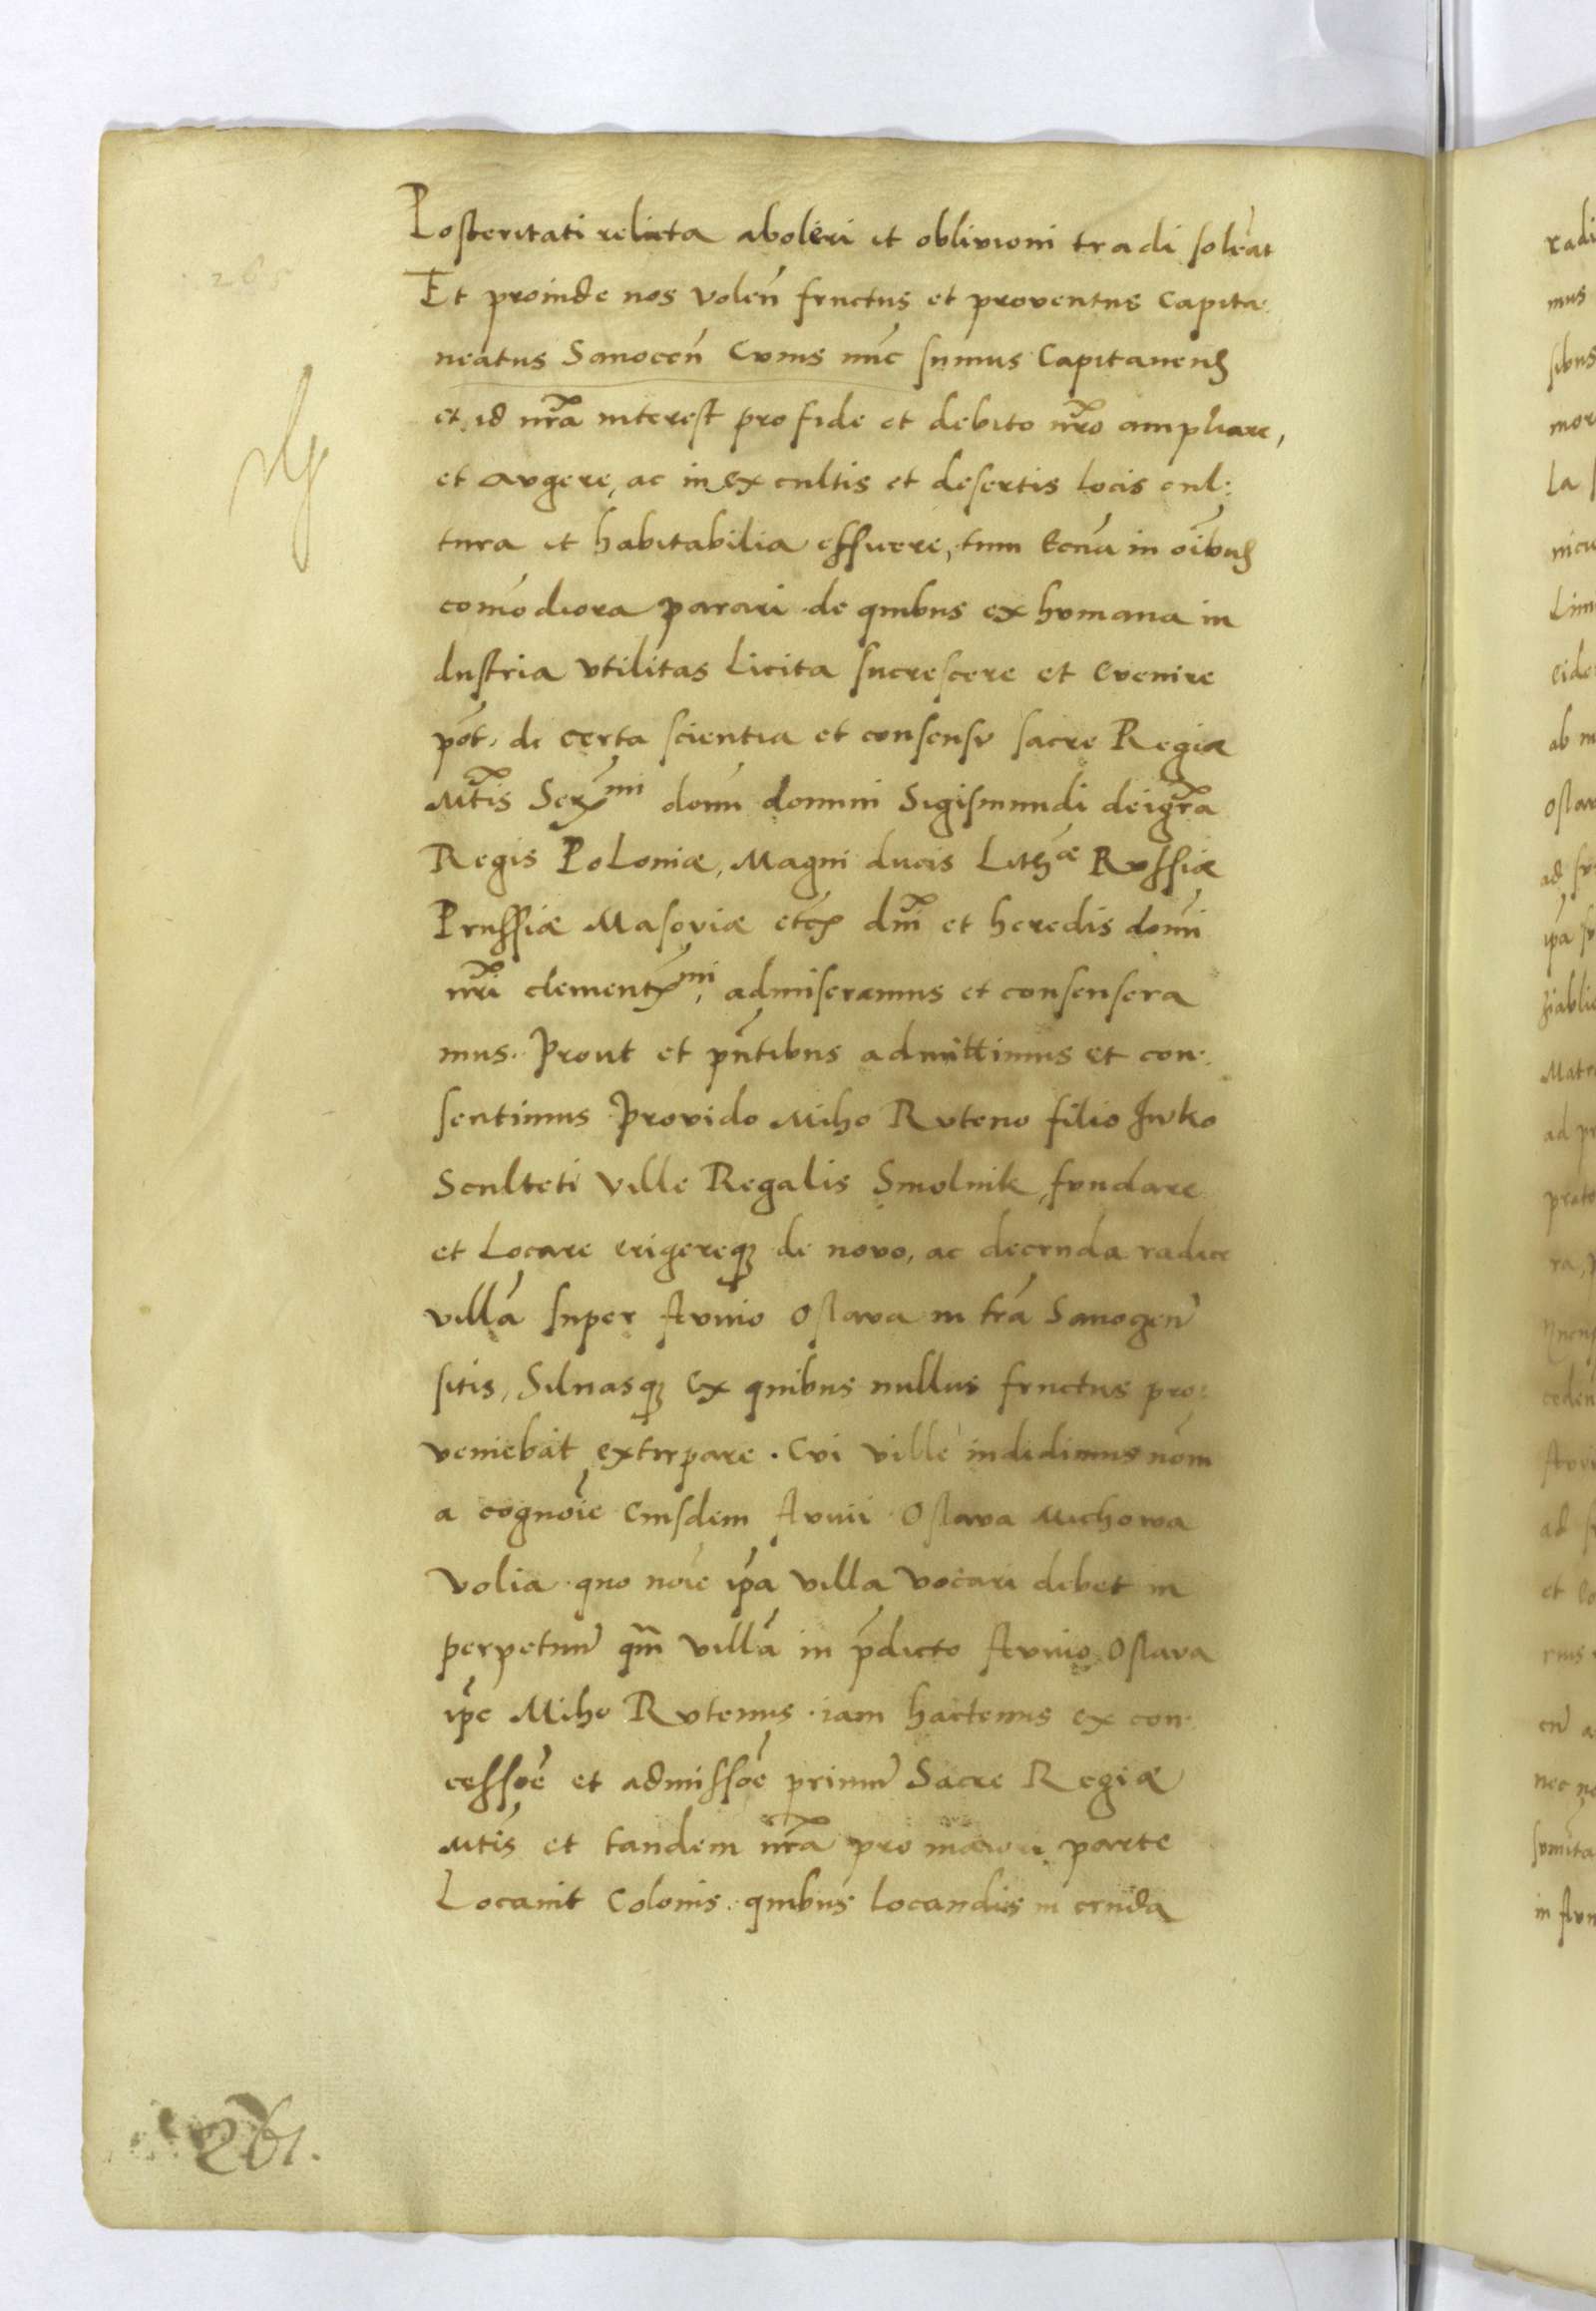 Posteritati relicta aboleri et oblivioni tradi soleāt
Et proinde nos volen̄ fructus et proventus Capita-
neatus Sanocen̄ Cuius nūc sumus Capitaneus
et id nr̄a interest pro fide et debito nr̄o ampliare,
et augere, ac in ex cultis et desertis locis cul:
tura et habitabilia efficere, tum Etiā in oībus
comōdiora parari de quibus ex humana in
dustria utilitas licita sucrescere et evenire
pōt. de certa scientia et consensu sacre Regiæ
Mt̄is Ser^mi domī domini Sigismundi dei gr̄a
Regis Poloniæ, Magni ducis Lith^æ Russiæ
Prussiæ Masoviæ etc̄ dn̄i et heredis domī
nr̄i clement^mi, admiseramus et consensera
mus. Prout et pn̄tibus admittimus et con-
sentimus Provido Miho Ruteno filio Iwko
Sculteti Ville Regalis Smolnik, fundare
et Locare erigereq; de novo, ac de cruda radice
villā super fluvio Oslava in tr̄a Sanocen̄
sitis, Siluasq; ex quibus nullus fructus pro:
veniebat extirpare. Cui ville indidimus nōm
a cognoīe eiusdem fluvii Oslava Michowa
Volia quo noīe ip̄a villa vocari debet in
perpetuū qm̄ villā in p̄dicto fluvio Oslava
ip̄e Miho Rutenus iam hactenus ex con-
cessiōe et admissiōe primū Sacre Regiæ
Mt̄is et tandem nr̄a pro maiori parte
Locavit Colonis. quibus locandis in cruda
261.